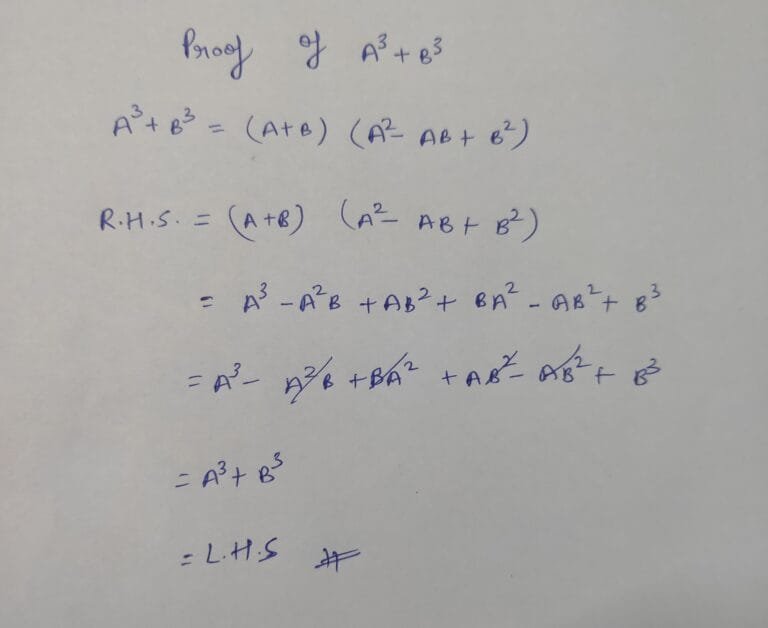 Proof of A³ + B³
A³ + B³ = (A+B) (A² - AB + B²)
R.H.S. = (A+B) (A² - AB + B²)
= A³ - A²B + AB² + BA² - AB² + B³
= A³ - A²B + BA² + AB² - AB² + B³
= A³ + B³
= L.H.S #